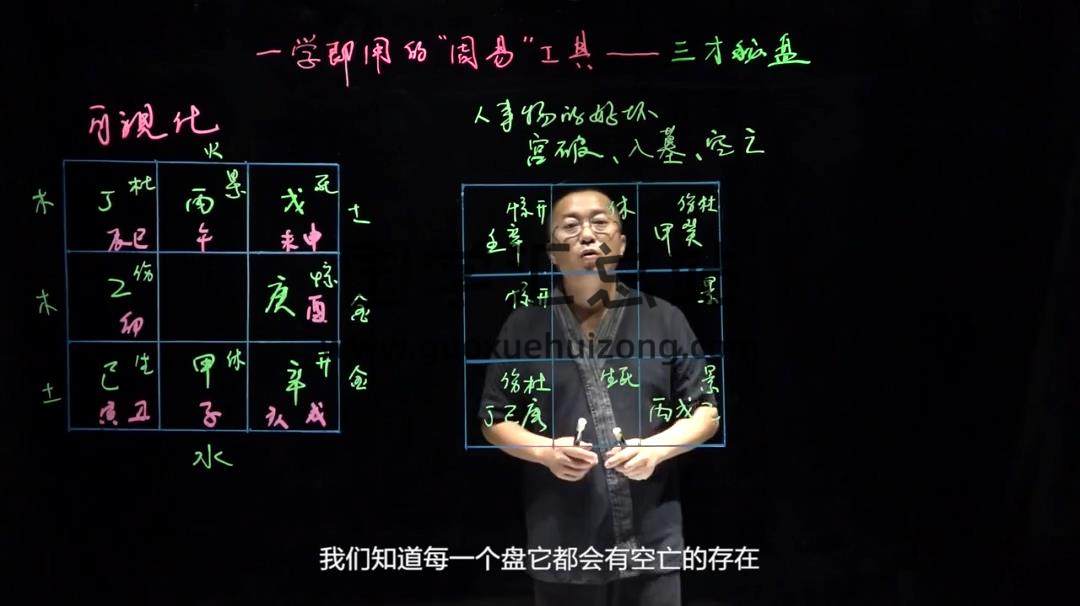 一学即用的“周易”工具——三才秘盘
可視化
人事物的好坏
宫破、入墓、空亡
火
木 丁杜 丙景 戊死 土
辰巳 午 未申
木 乙伤 庚惊 金
卯 酉
土 己生 甲休 辛开 金
寅丑 子 亥戌
水
惊开 休 伤杜
壬辛 甲癸
惊开 景
伤杜 生死 景
丁己庚 丙戊
www.guoxuehuizong.com
我们知道每一个盘它都会有空亡的存在